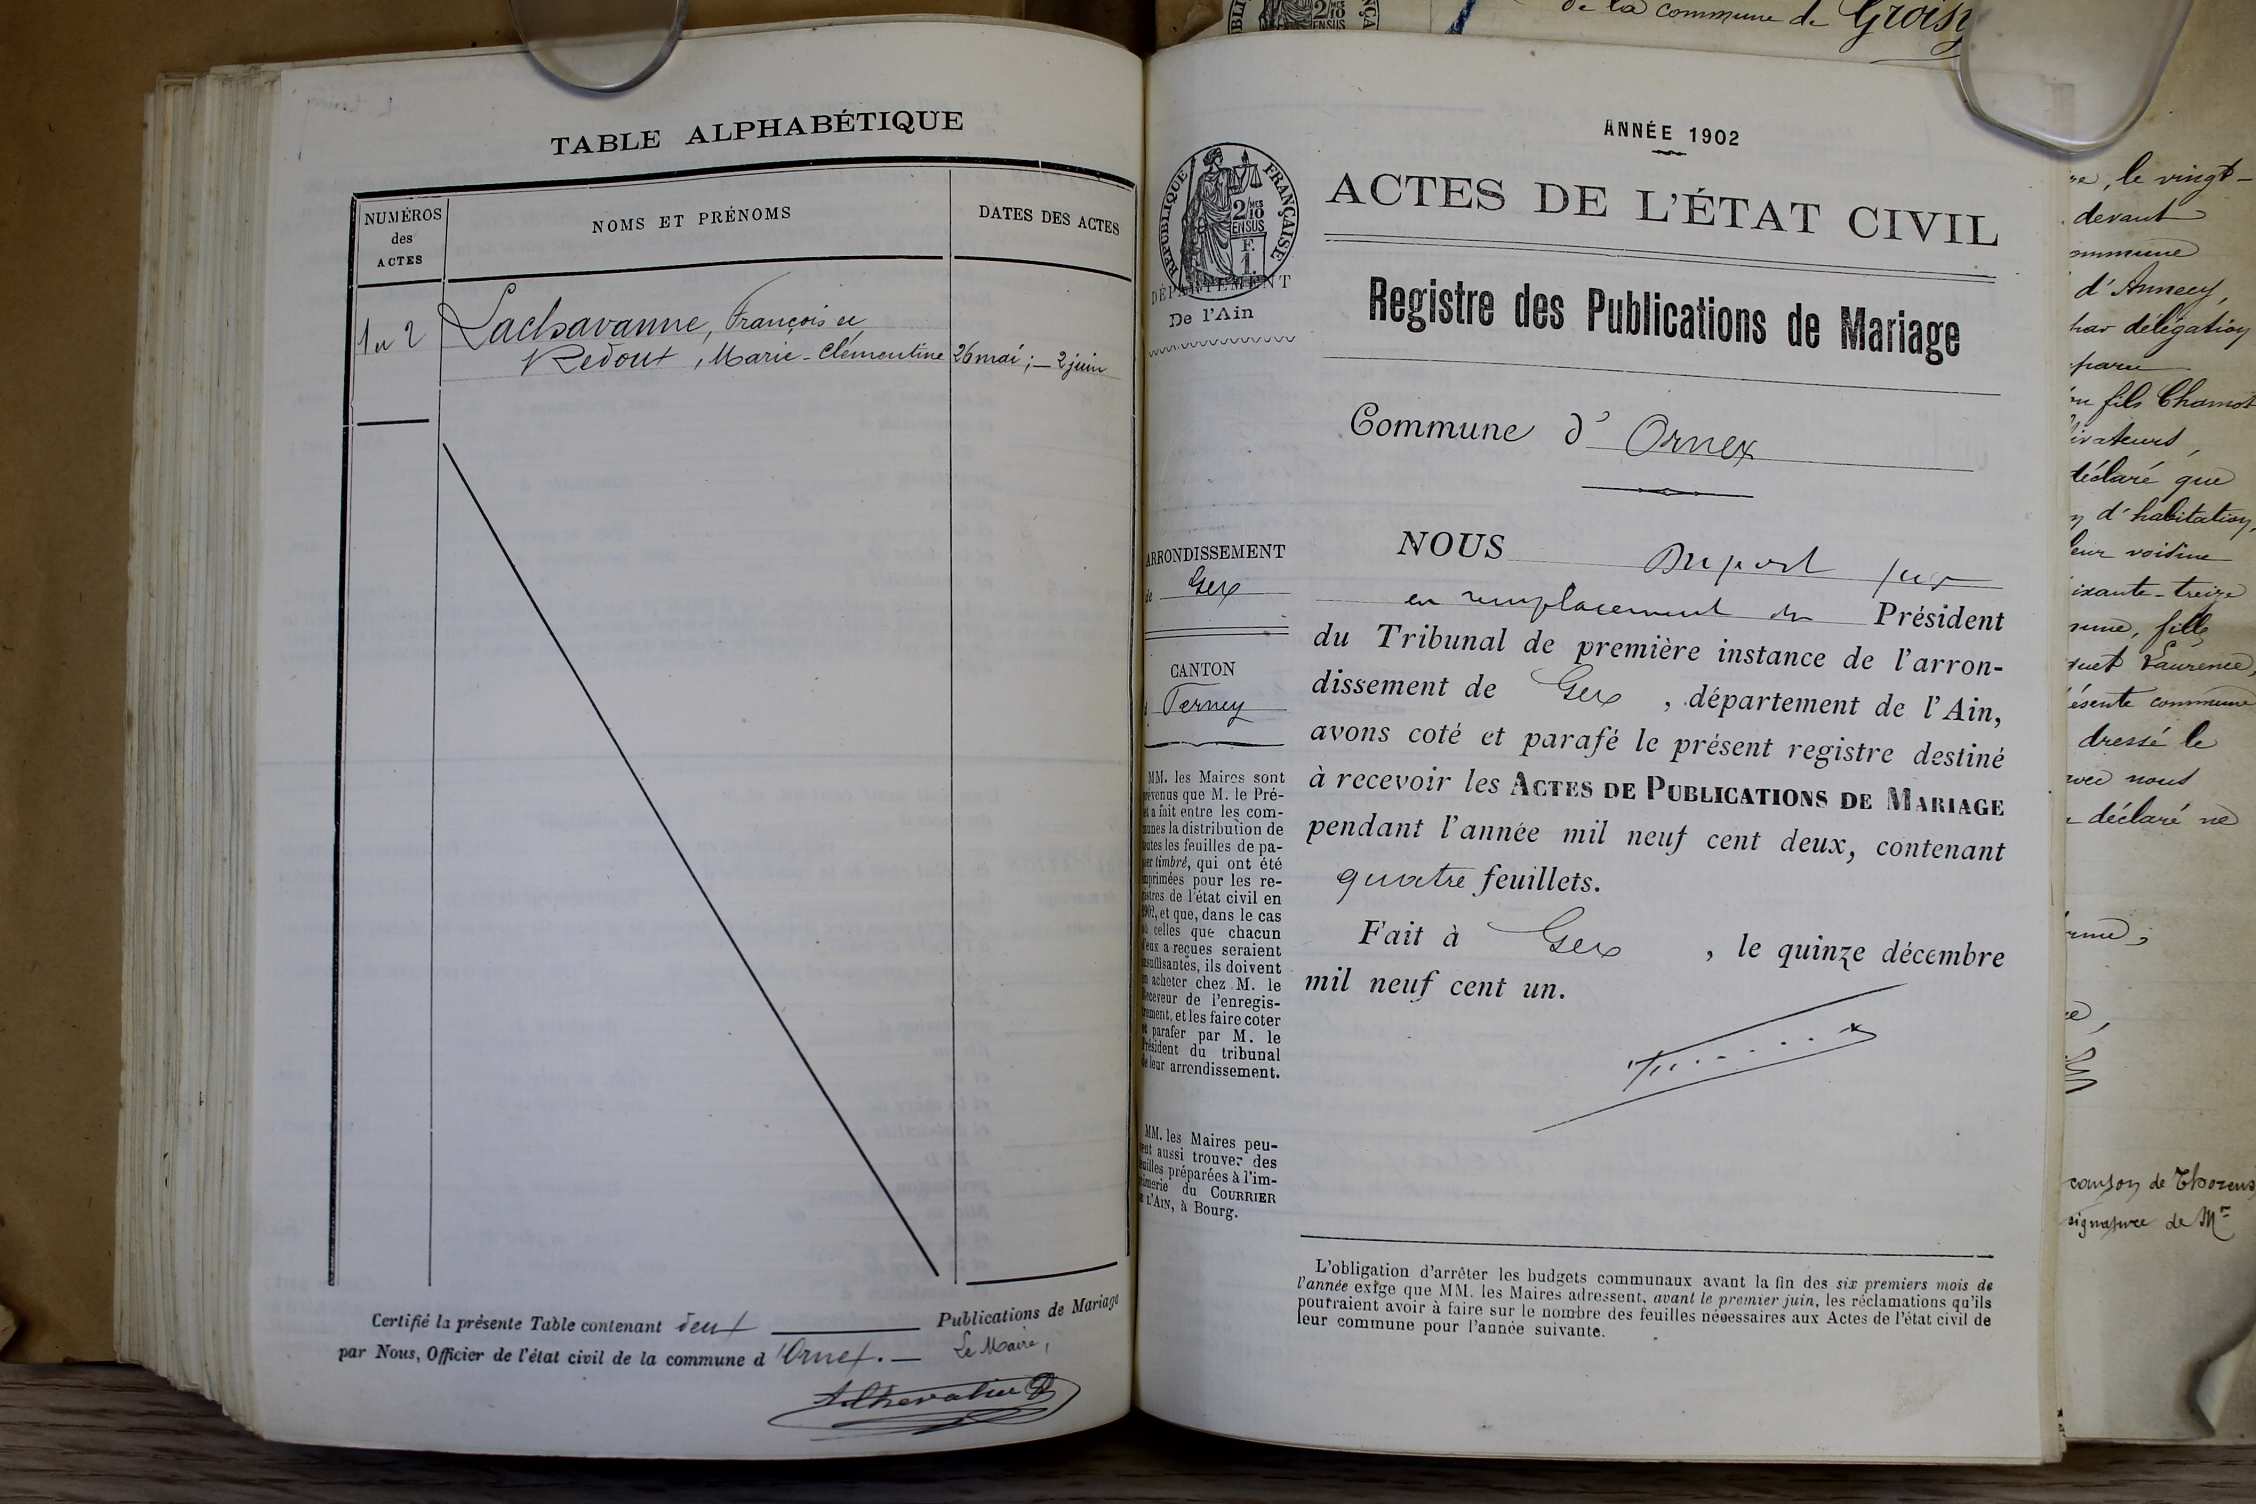 TABLE ALPHABÉTIQUE
NUMÉROS
des
ACTES
NOMS ET PRÉNOMS
DATES DES ACTES
1 et 2
Lachavanne, François et
Redout, Marie-Clémentine
26 mai ; — 2 juin
Certifié la présente Table contenant deux
Publications de Mariage
par Nous, Officier de l'état civil de la commune d'Ornex. —
Le Maire,
ANNÉE 1902
ACTES DE L'ÉTAT CIVIL
RÉPUBLIQUE FRANÇAISE
2/10
EN SUS
F.
1.
DÉPARTEMENT
De l'Ain
Registre des Publications de Mariage
Commune d' Ornex
ARRONDISSEMENT
de Gex
CANTON
Ferney
MM. les Maires sont
prévenus que M. le Pré-
fet a fait entre les com-
munes la distribution de
toutes les feuilles de pa-
pier timbré, qui ont été
imprimées pour les re-
gistres de l'état civil en
1902, et que, dans le cas
où celles que chacun
d'eux a reçues seraient
insuffisantes, ils doivent
en acheter chez M. le
Receveur de l'enregis-
trement, et les faire coter
et parafer par M. le
Président du tribunal
de leur arrondissement.
MM. les Maires peu-
vent aussi trouver des
feuilles préparées à l'im-
primerie du COURRIER
DE L'AIN, à Bourg.
NOUS Duport
en remplacement du Président
du Tribunal de première instance de l'arron-
dissement de Gex , département de l'Ain,
avons coté et parafé le présent registre destiné
à recevoir les ACTES DE PUBLICATIONS DE MARIAGE
pendant l'année mil neuf cent deux, contenant
quatre feuillets.
Fait à Gex , le quinze décembre
mil neuf cent un.
L'obligation d'arrêter les budgets communaux avant la fin des six premiers mois de
l'année exige que MM. les Maires adressent, avant le premier juin, les réclamations qu'ils
pourraient avoir à faire sur le nombre des feuilles nécessaires aux Actes de l'état civil de
leur commune pour l'année suivante.
de la commune de Groisy
le vingt-
devant
d'Annecy,
délégation
fils Chamot
déclaré que
d'habitation,
voisine
treize
fille
Laurence,
commune
dressé le
nous
déclaré ne
de Thorens
signature de Mr